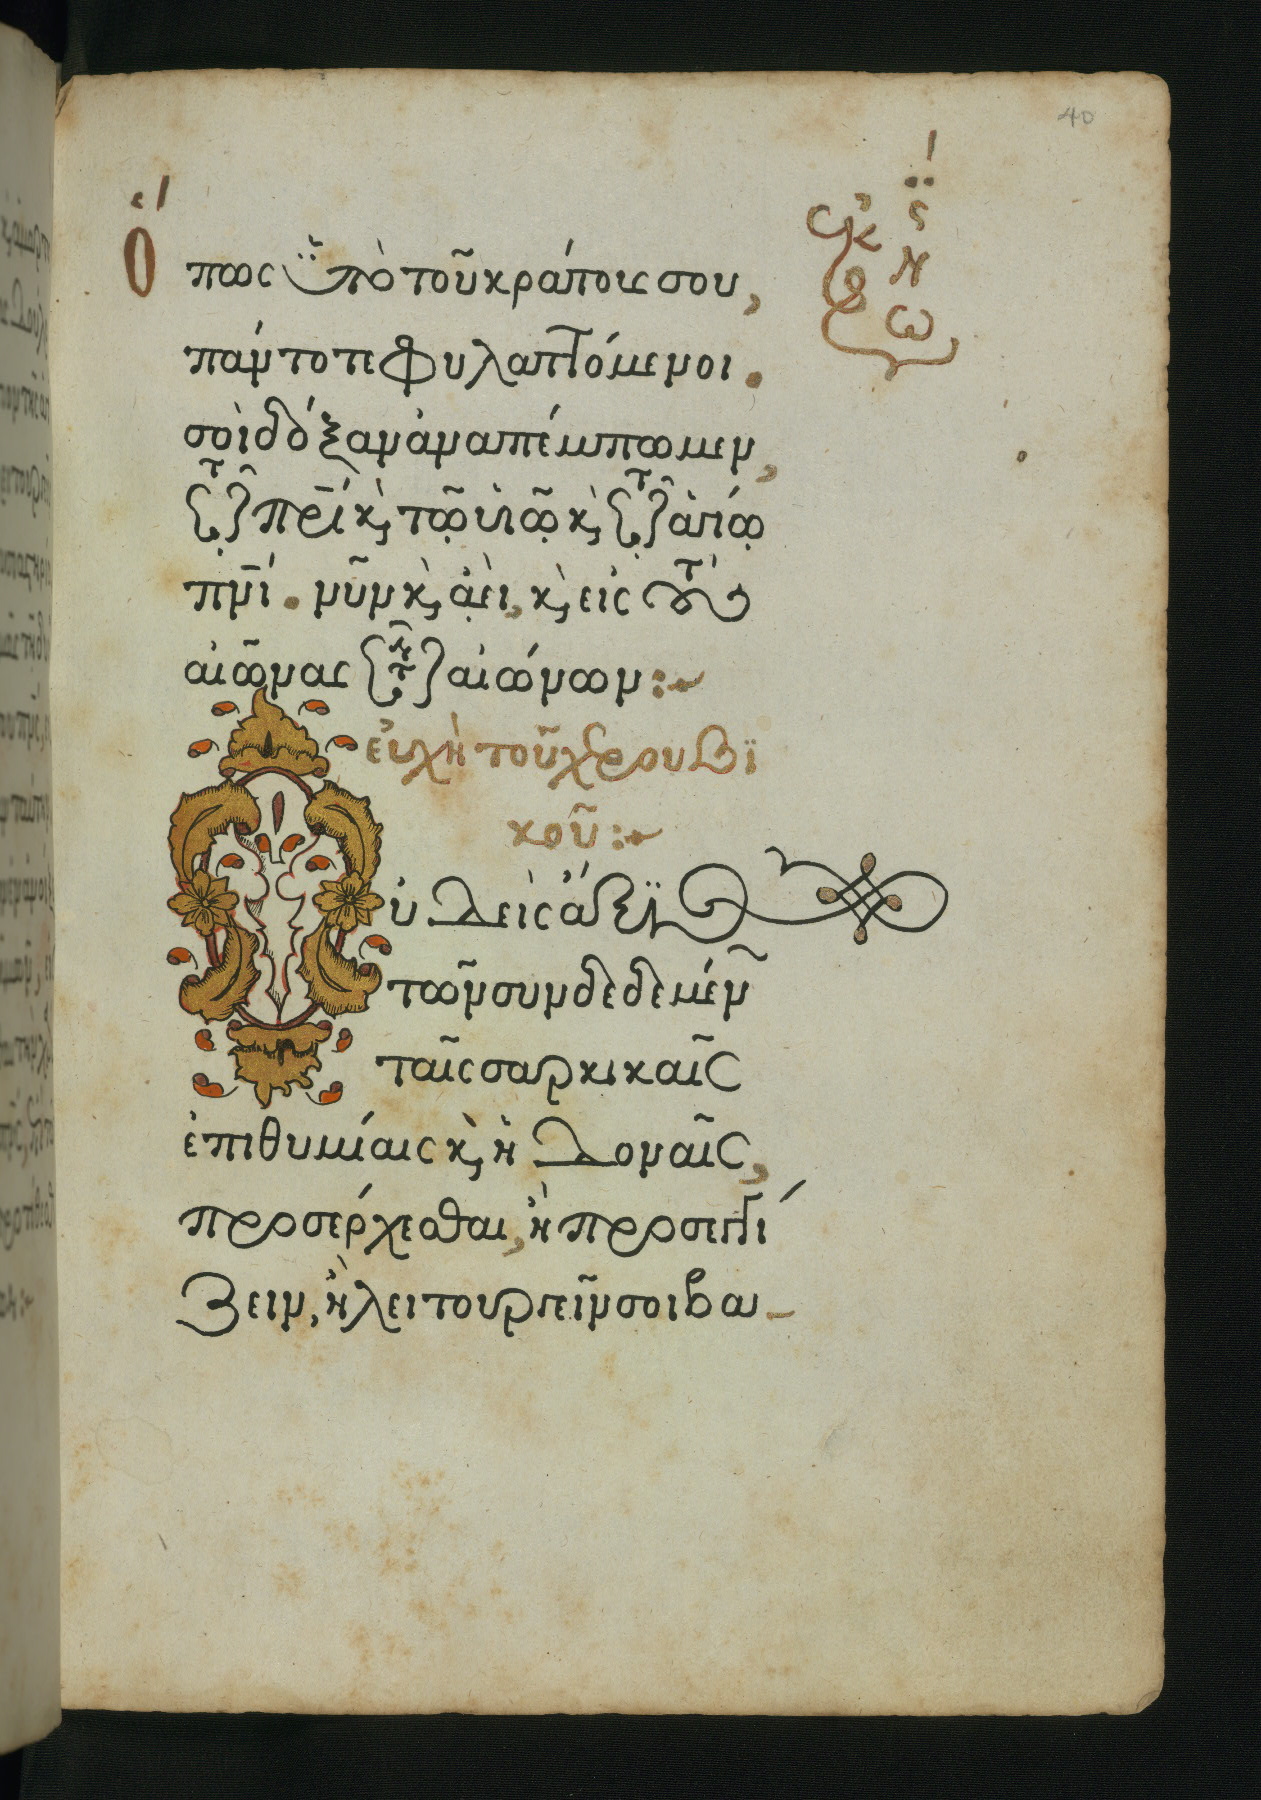 40
Ὅπως ὑπὸ τοῦ κράτους σου,
πάντοτε φυλαττόμενοι.
σοὶ δόξαν ἀναπέμπωμεν,
τῷ πρῒ κ̀ τῷ ὑιῷ κ̀ τῷ ἁγίῳ
πνῒ. νῦν κ̀ ἀεὶ, κ̀ εἰς τοὺς
αἰῶνας τῶν αἰώνων:
ἐυχὴ τοῦ χερουβϊ
κοῦ:
Οὐδεὶς ἄξϊος
τῶν συνδεδεμένων
ταῖς σαρκικαῖς
ἐπιθυμίαις κ̀ ἡδοναῖς,
προσέρχεσθαι, ἢ προσεγγί
ζειν, ἢ λειτουργεῖν σοι βα